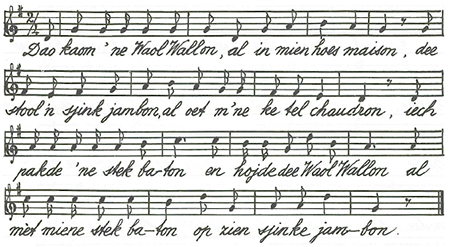 Dao kaom 'ne Waol Wallon, al in mien hoes maison, dee
stool 'n sjink jambon, al oet m'ne ke tel chaudron, iech
pakde 'ne stek ba-ton en hojde dee Waol Wallon al
met miene stek ba-ton op zien sjinke jam-bon.